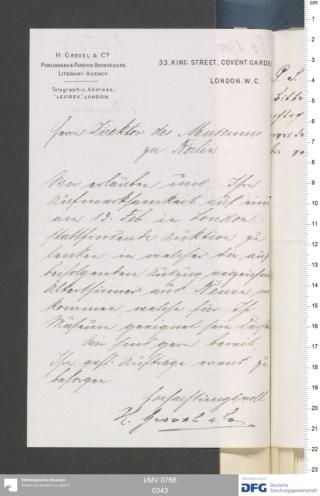 H. GREVEL & Cº
PUBLISHERS & FOREIGN BOOKSELLERS,
LITERARY AGENCY.
Telegraphic Address,
"LEGREV," LONDON.
33, KING STREET, COVENT GARDE
LONDON. W. C.
Herrn Direktor des Museums
zu Berlin.
Wir erlauben uns, Ihre
Aufmerksamkeit auf eine
am 13. Feb in London
stattfindende Auktion zu
lenken, in welcher die auf
beifolgenden Auszug
Alterthümer aus Benin
kommen, welche für Ihr
Museum geeignet sein
Wir sind gern bereit
Ihre gefl. Aufträge event zu
besorgen.
Hochachtungsvoll
H. Grevel & Co
P. S.
Bitte
Ethnologisches Museum
Staatliche Museen zu Berlin
I/MV 0766
0343
DFG
Deutsche
Forschungsgemeinschaft